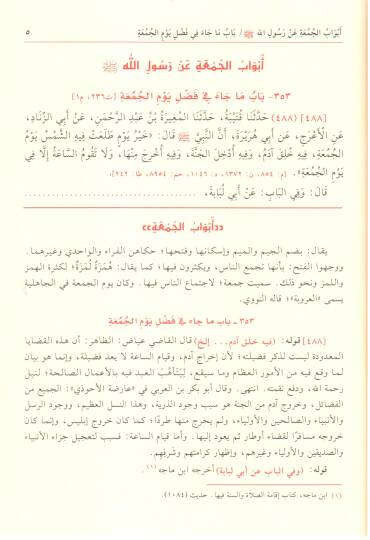 أَبْوَابُ الجُمُعَةِ عَنْ رَسُولِ اللهِ ﷺ / بَابُ مَا جَاءَ فِي فَضْلِ يَوْمِ الجُمُعَةِ ٥
أَبْوَابُ الجُمُعَةِ عَنْ رَسُولِ اللهِ ﷺ
٣٥٣- بَابُ مَا جَاءَ فِي فَضْلِ يَوْمِ الجُمُعَةِ [ت٢٣٦، م١]
[٤٨٨] (٤٨٨) حَدَّثَنَا قُتَيْبَةُ، حَدَّثَنَا المُغِيرَةُ بْنُ عَبْدِ الرَّحْمَنِ، عَنْ أَبِي الزِّنَادِ،
عَنِ الأَعْرَجِ، عَن أَبِي هُرَيْرَةَ، أَنَّ النَّبِيَّ ﷺ قَالَ: «خَيْرُ يَوْمٍ طَلَعَتْ فِيهِ الشَّمْسُ يَوْمُ
الجُمُعَةِ، فِيهِ خُلِقَ آدَمُ، وَفِيهِ أُدْخِلَ الجَنَّةَ، وَفِيهِ أُخْرِجَ مِنْهَا، وَلَا تَقُومُ السَّاعَةُ إِلَّا فِي
يَوْمِ الجُمُعَةِ». [م: ٨٥٤، ن: ١٣٧٢، د: ١٠٤٦، حم: ٨٩٥٤، طا: ٢٤٢].
قَالَ: وَفِي البَابِ: عَنْ أَبِي لُبَابَةَ،
«أَبْوَابُ الجُمُعَةِ»
يقال: بضم الجيم والميم وإسكانها وفتحها؛ حكاهن الفراء والواحدي وغيرهما.
ووجهوا الفتح: بأنها تجمع الناس، ويكثرون فيها؛ كما يقال: هُمَزَةٌ لُمَزَةٌ؛ لكثرة الهمز
واللمز ونحو ذلك. سميت جمعة؛ لاجتماع الناس فيها. وكان يوم الجمعة في الجاهلية
يسمى «العروبة»؛ قاله النووي.
٣٥٣- باب ما جاء في فَضْلِ يَوْمِ الجُمُعَةِ
[٤٨٨] قوله: (فيه خلق آدم... إلخ) قال القاضي عياض: الظاهر: أن هذه القضايا
المعدودة ليست لذكر فضيلته؛ لأن إخراج آدم، وقيام الساعة لا يعد فضيلة، وإنما هو بيان
لما وقع فيه من الأمور العظام وما سيقع، ليتأهب العبد فيه بالأعمال الصالحة؛ لنيل
رحمة الله، ودفع نقمته. انتهى. وقال أبو بكر بن العربي في «عارضة الأحوذي»: الجميع من
الفضائل، وخروج آدم من الجنة هو سبب وجود الذرية، وهذا النسل العظيم، ووجود الرسل
والأنبياء والصالحين والأولياء، ولم يخرج منها طردًا؛ كما كان خروج إبليس، وإنما كان
خروجه مسافرًا لقضاء أوطار ثم يعود إليها. وأما قيام الساعة: فسبب لتعجيل جزاء الأنبياء
والصديقين والأولياء وغيرهم، وإظهار كرامتهم وشرفِهِم.
قوله: (وفي الباب عن أبي لبابة) أخرجه ابن ماجه(١).
(١) ابن ماجه، كتاب إقامة الصلاة والسنة فيها. حديث (١٠٨٤).